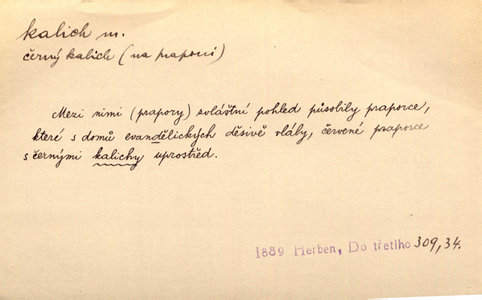 kalich m.
černý kalich (na praporci)
Mezi nimi (prapory) zvláštní pohled působily praporce,
které s domů evandělických děsivě vlály, červené praporce
s černými kalichy uprostřed.
1889 Herben, Do třetího 309,34.